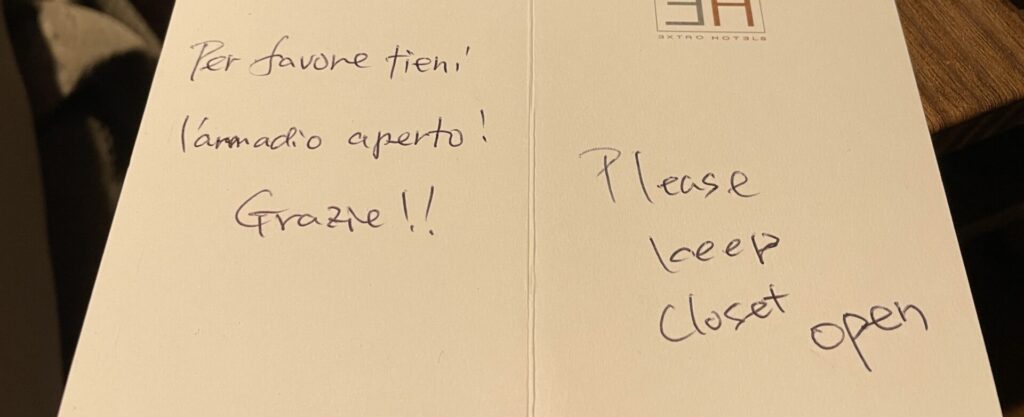 Per favore tieni
l'armadio aperto!
Grazie!!
EH
EXTRO HOTELS
Please
keep
closet open